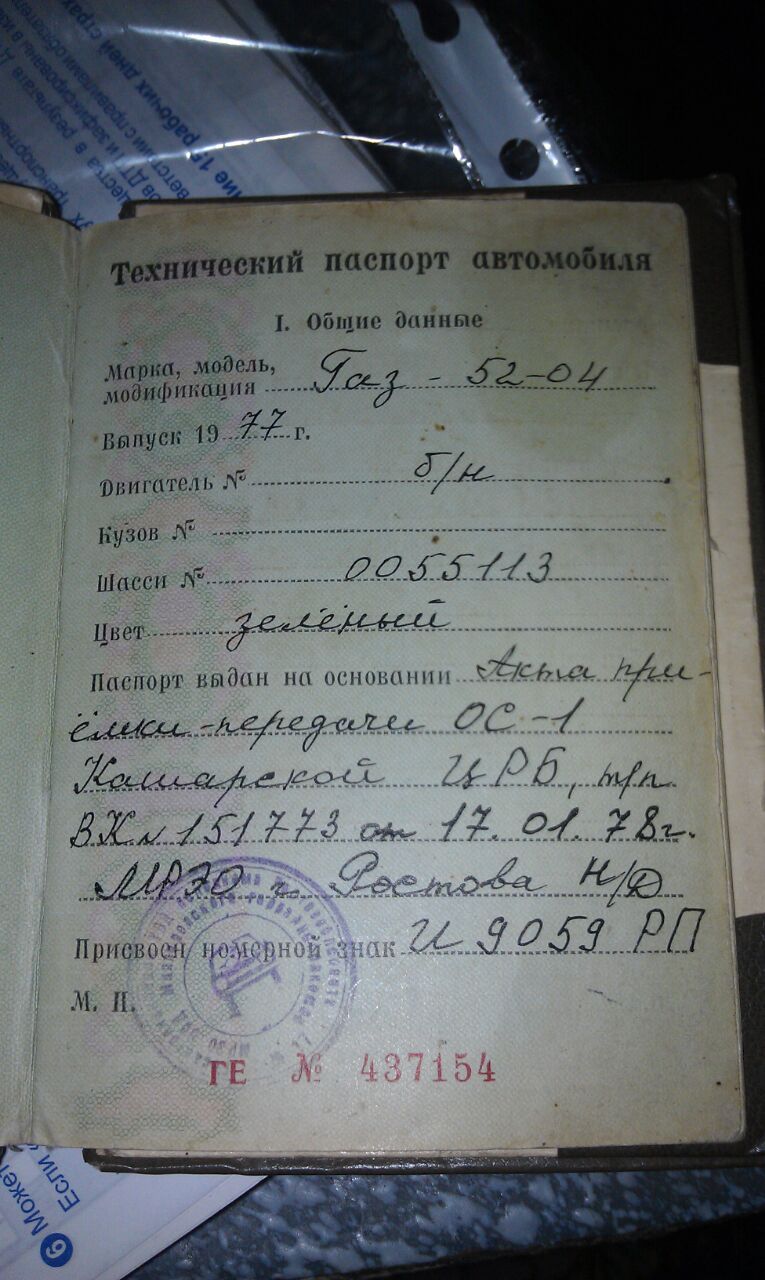 Технический паспорт автомобиля
I. Общие данные
Марка, модель,
модификация Газ - 52-04
Выпуск 1977 г.
Двигатель № б/н
Кузов №
Шасси № 0055113
Цвет зелёный
Паспорт выдан на основании Акта при-
ёмки-передачи ОС-1
Кашарской ЦРБ, т/п
ВК № 151773 от 17.01.78г.
МРЭО г. Ростова Н/Д
Присвоен номерной знак И 9059 РП
М. П.
ГЕ № 437154
6 Может
Если